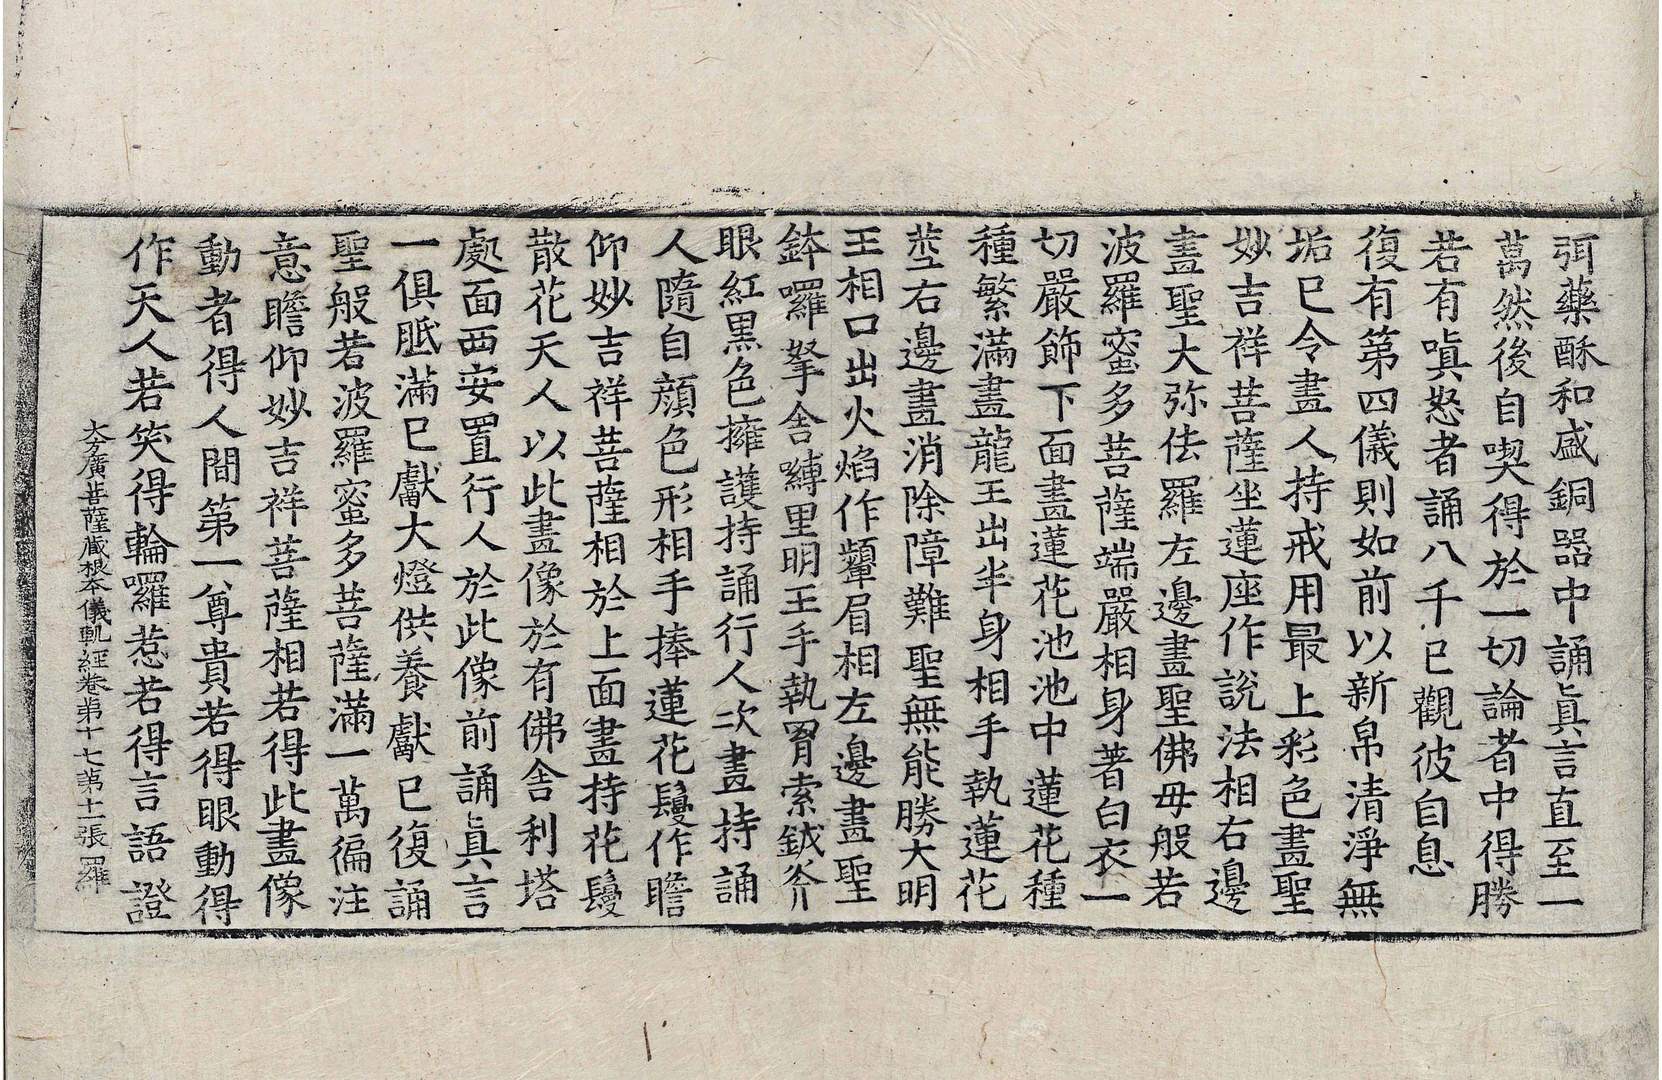 弭藥酥和盛銅器中誦眞言直至一
萬然後自喫得於一切論者中得勝
若有嗔怒者誦八千已觀彼自息
復有第四儀則如前以新帛清淨無
垢已令畫人持戒用最上彩色畫聖
妙吉祥菩薩坐蓮座作說法相右邊
畫聖大弥佉羅左邊畫聖佛母般若
波羅蜜多菩薩端嚴相身著白衣一
切嚴飾下面畫蓮花池池中蓮花種
種繁滿畫龍王出半身相手執蓮花
莖右邊畫消除障難聖無能勝大明
王相口出火焰作顰眉相左邊畫聖
鉢囉拏舍嚩里明王手執罥索鉞斧
眼紅黑色擁護持誦行人次畫持誦
人隨自顏色形相手捧蓮花鬘作瞻
仰妙吉祥菩薩相於上面畫持花鬘
散花天人以此畫像於有佛舍利塔
處面西安置行人於此像前誦眞言
一俱胝滿已獻大燈供養獻已復誦
聖般若波羅蜜多菩薩滿一萬徧注
意瞻仰妙吉祥菩薩相若得此畫像
動者得人間第一尊貴若得眼動得
作天人若笑得輪囉惹若得言語證
大方廣菩薩藏根本儀軌經卷第十七第十一張 羅